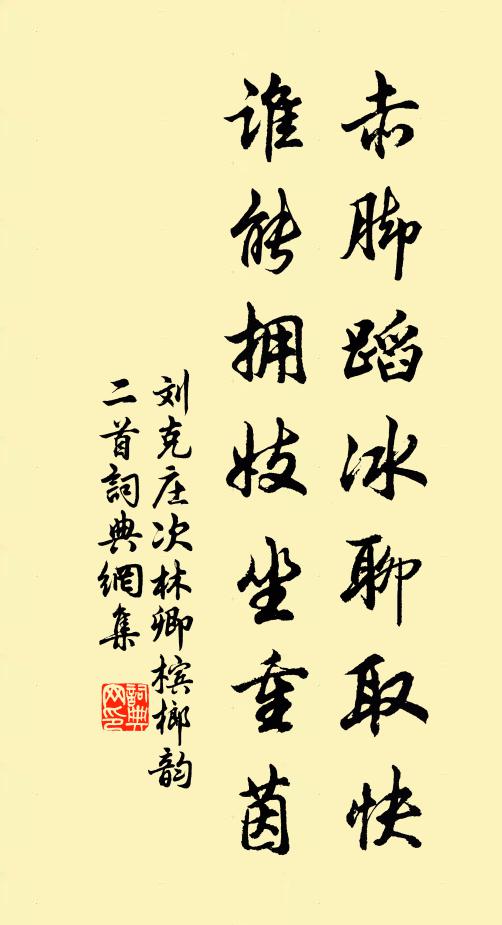 赤脚蹈冰聊取快
谁能拥妓坐重茵
刘克庄次林卿槟榔韵
二首詞典網集
詞典
网印